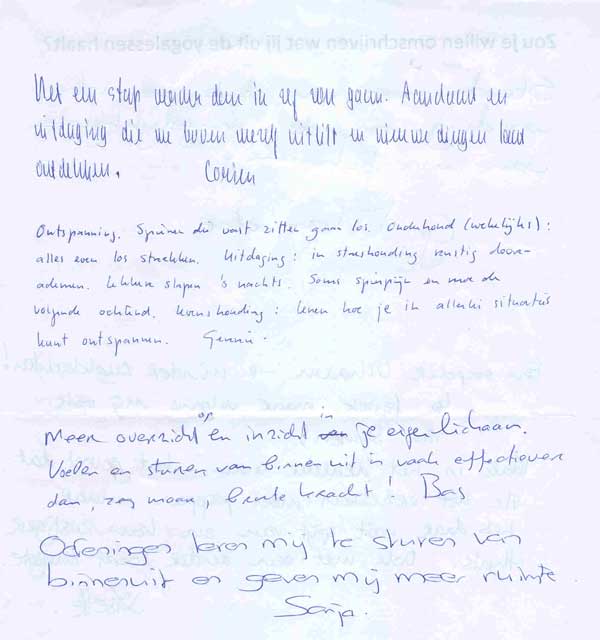 Zou je willen omschrijven wat jij uit de yogalessen haalt?
Net een stap verder dan in zef van gaan. Aandacht en
uitdaging die me boven mezelf uittilt en nieuwe dingen laat
ontdekken. Corien
Ontspanning. Spieren die vast zitten gaan los. Onderhoud (wekelijks):
alles even los strekken. Uitdaging: in stresshouding rustig door-
ademen. Lekker slapen 's nachts. Soms spierpijn en moe de
volgende ochtend. Levenshouding: leren hoe je in allerlei situaties
kunt ontspannen. Gennie.
op in
Meer overzicht en inzicht je eigen lichaam.
Voelen en sturen van binnenuit is vaak effectiever
dan, zeg maar, brute kracht! Bas
Oefeningen leren mij te sturen van
binnenuit en geven mij meer ruimte.
Sonja.